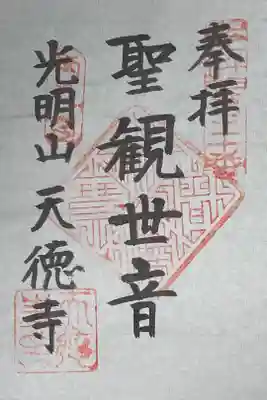 奉拝
聖観世音
光明山天徳寺